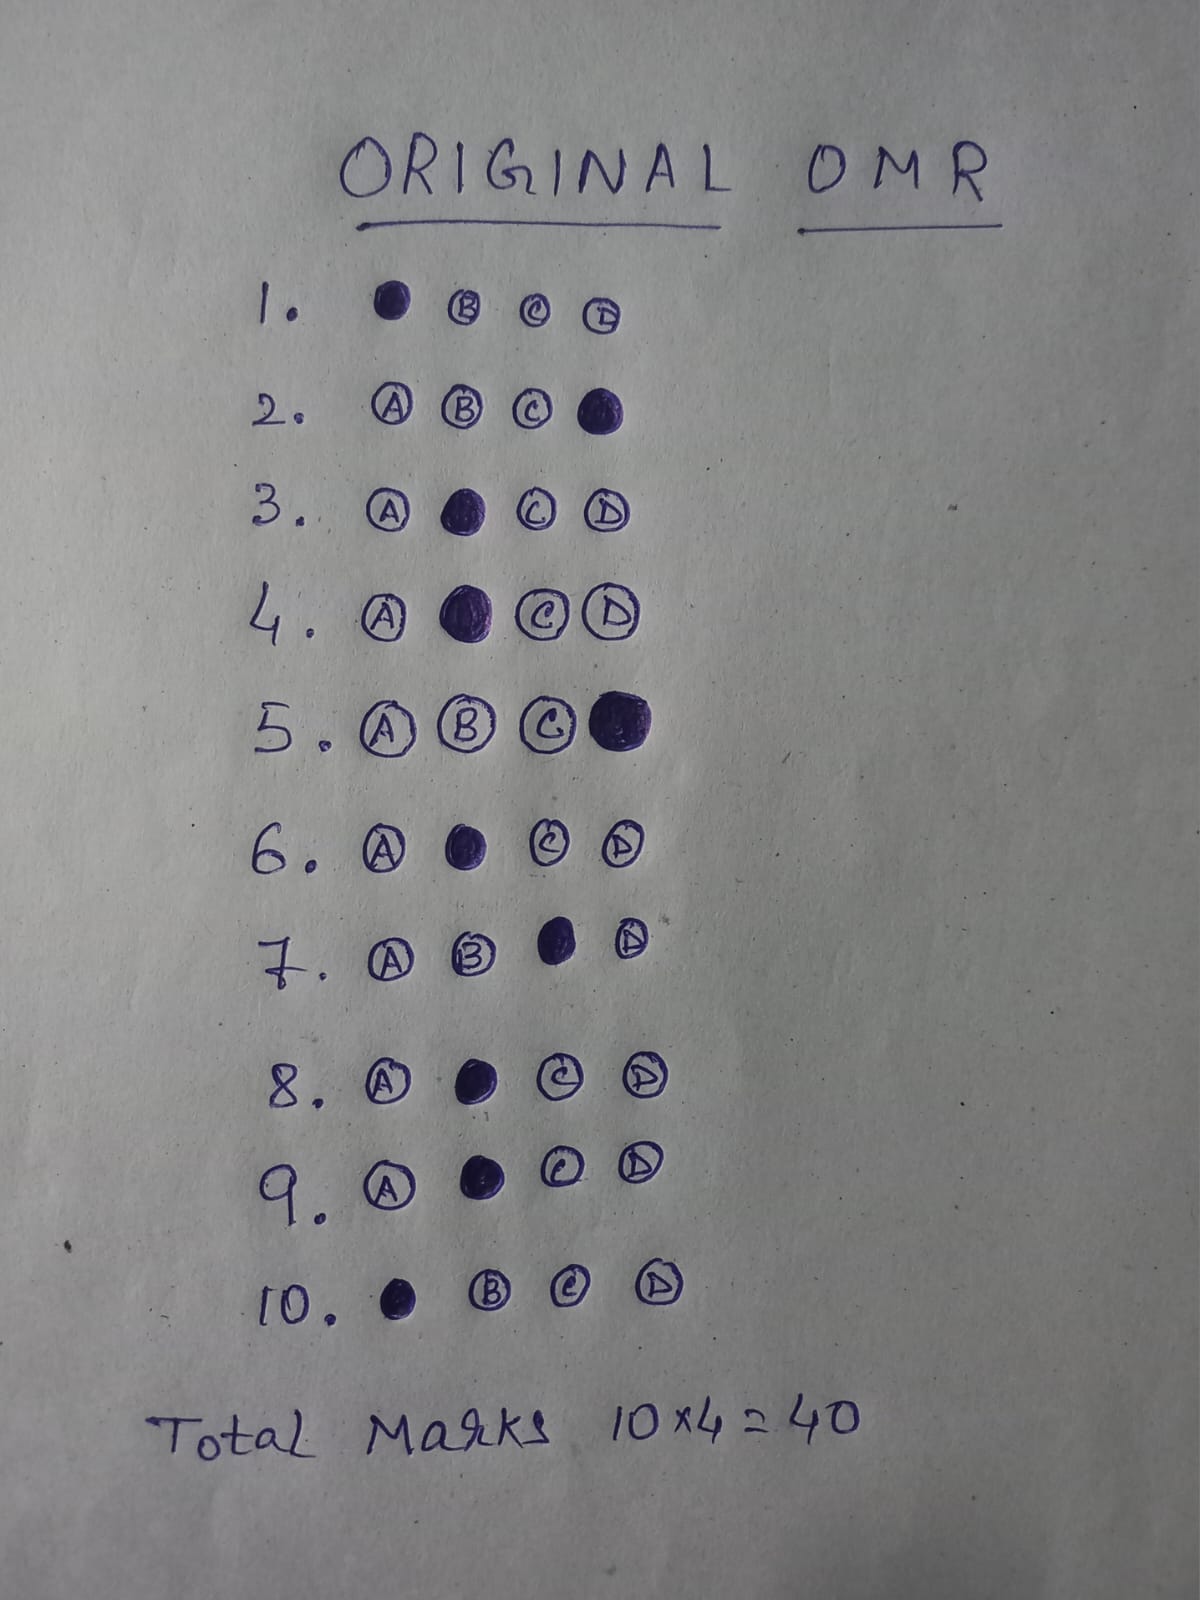 ORIGINAL OMR
1. ● Ⓑ Ⓒ Ⓓ
2. Ⓐ Ⓑ Ⓒ ●
3. Ⓐ ● Ⓒ Ⓓ
4. Ⓐ ● Ⓒ Ⓓ
5. Ⓐ Ⓑ Ⓒ ●
6. Ⓐ ● Ⓒ Ⓓ
7. Ⓐ Ⓑ ● Ⓓ
8. Ⓐ ● Ⓒ Ⓓ
9. Ⓐ ● Ⓒ Ⓓ
10. ● Ⓑ Ⓒ Ⓓ
Total Marks 10×4=40